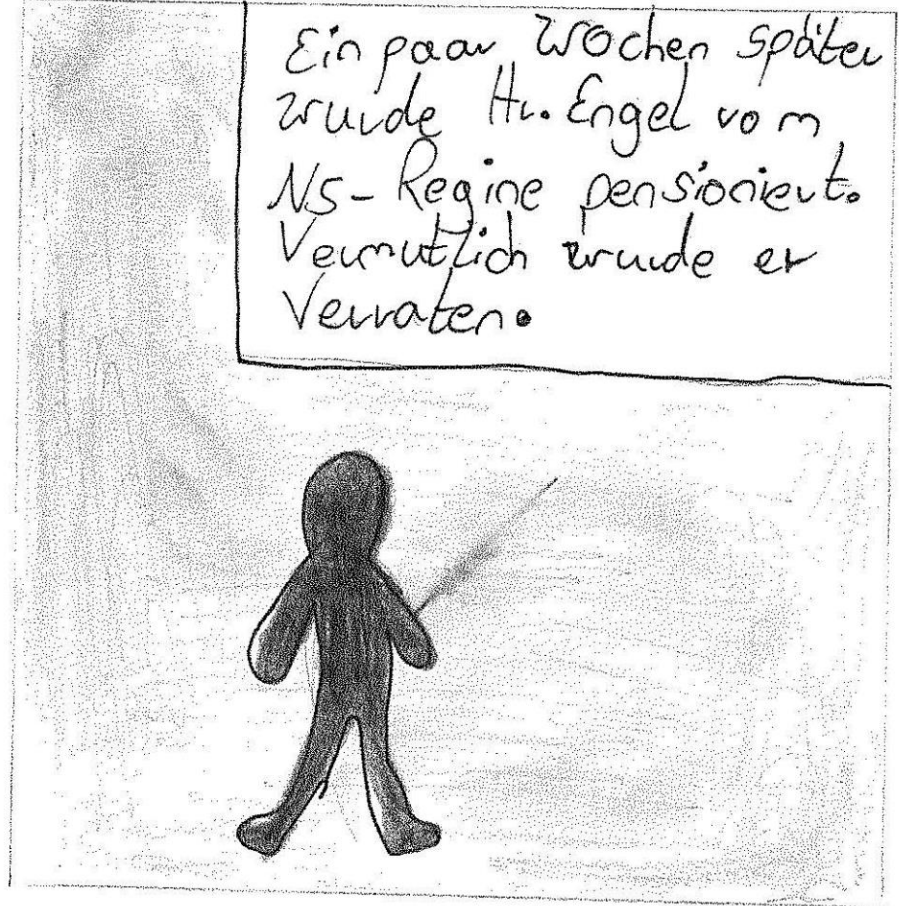 Ein paar Wochen später
wurde Hr. Engel vom
NS-Regine pensioniert.
Vermutlich wurde er
Verraten.